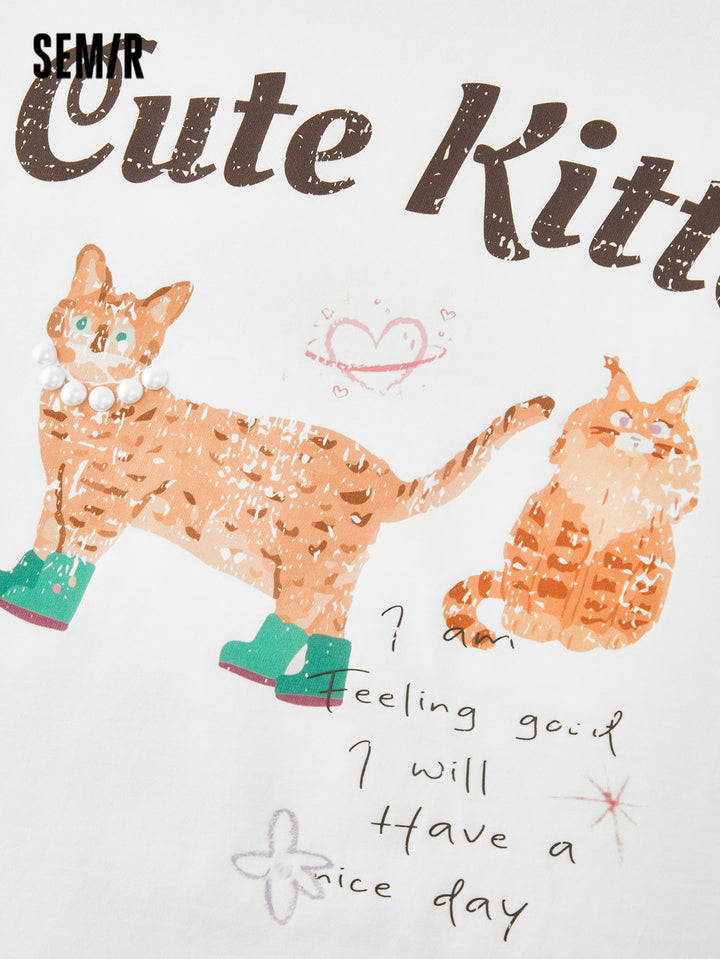 SEMIR
Cute Kitt
I am
Feeling good
I will
Have a
nice day